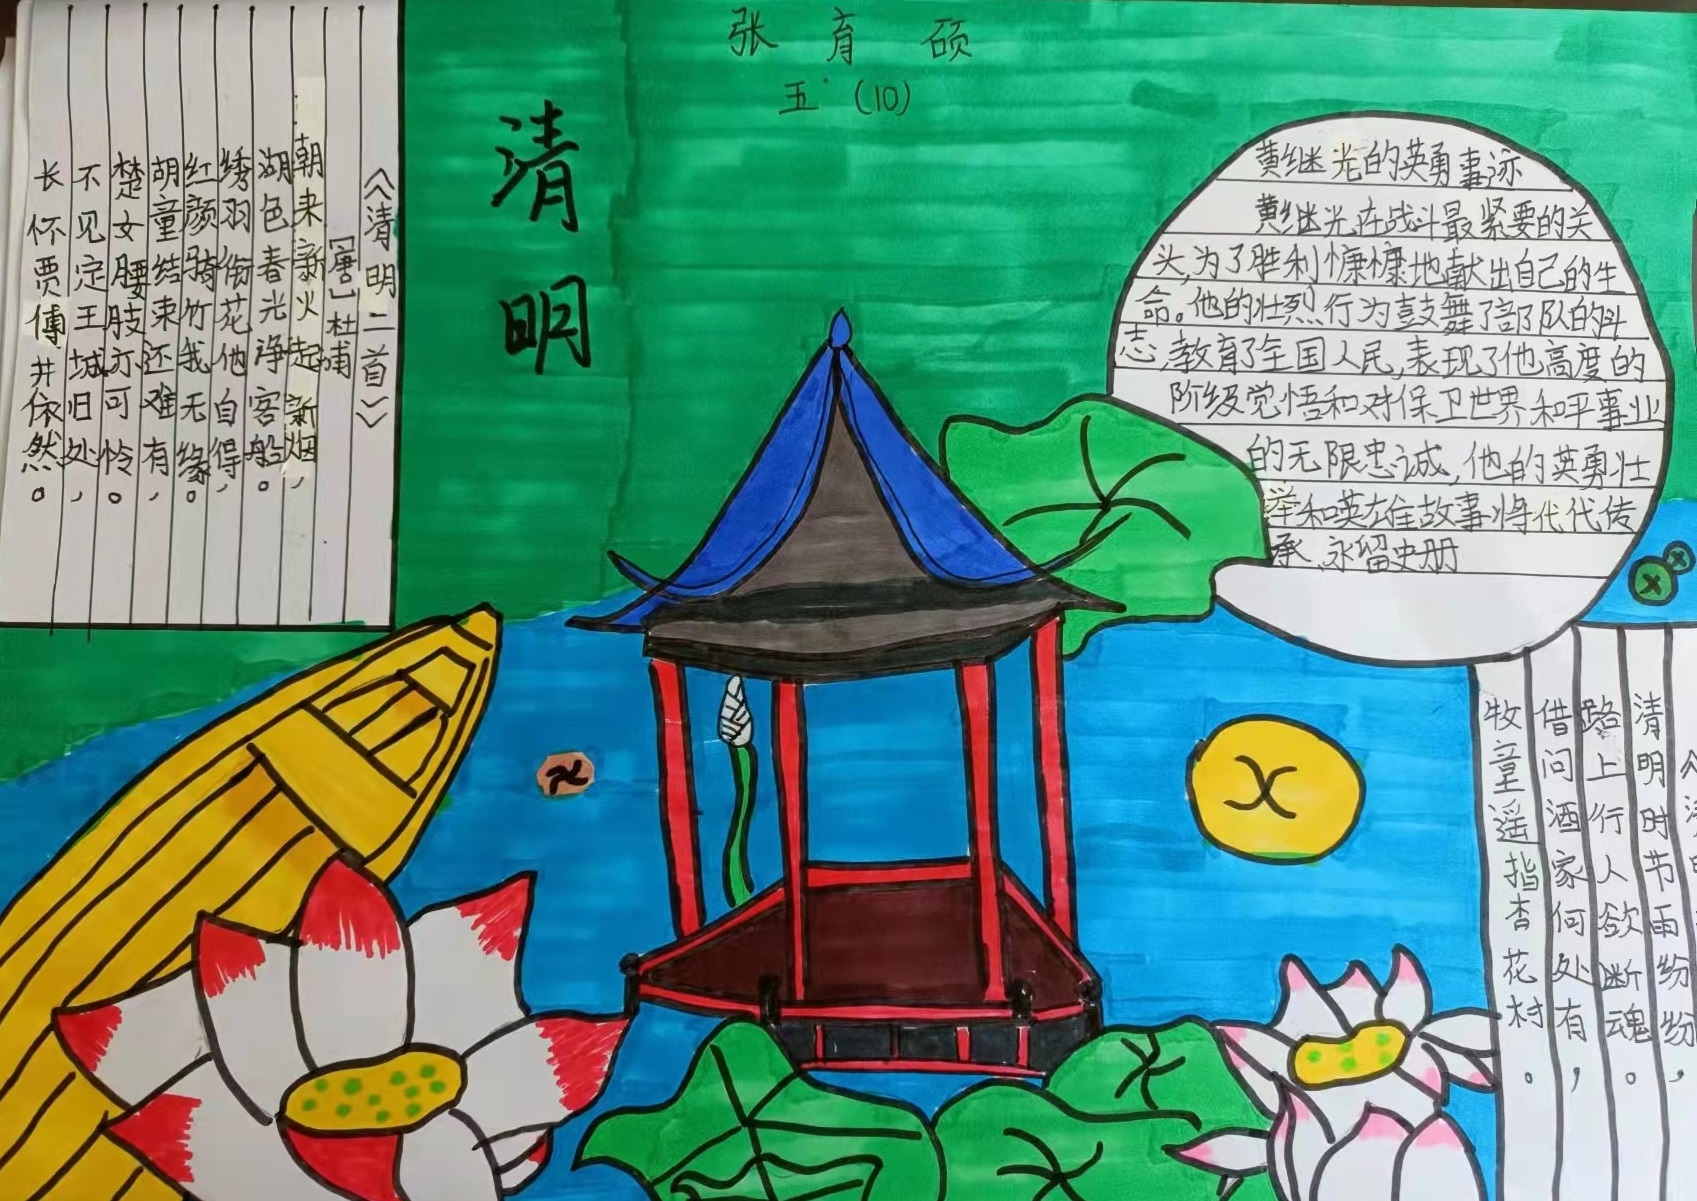 张育硕
五(10)
清明
《清明二首》
[唐]杜哺
朝来新火起新烟，
湖色春光净客船。
绣羽衔花他自得，
红颜骑竹我无缘。
胡童结束还难有，
楚女腰肢亦可怜。
不见定王城旧处，
长怀贾傅井依然。
黄继光的英勇事迹
黄继光在战斗最紧要的关
头,为了胜利慷慷地献出自己的生
命。他的壮烈行为鼓舞了部队的斗
志,教育了全国人民,表现了他高度的
阶级觉悟和对保卫世界和平事业
的无限忠诚,他的英勇壮
举和英雄故事将代代传
承,永留史册
清明时节雨纷纷，
路上行人欲断魂。
借问酒家何处有，
牧童遥指杏花村。